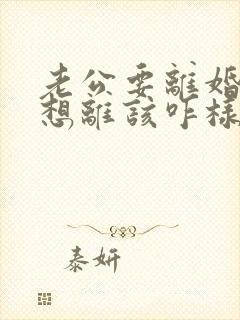 老公要離婚
想離該咋樣
泰妍